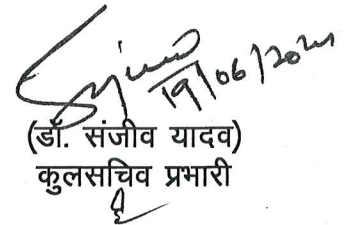 19/06/2024
(डॉ. संजीव यादव)
कुलसचिव प्रभारी